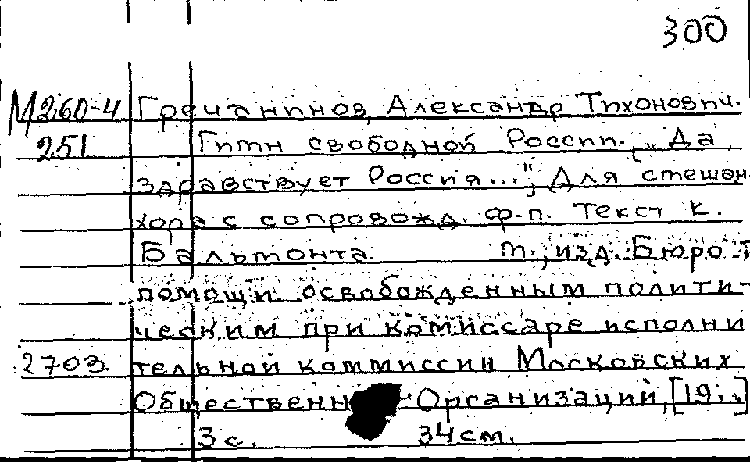 300
М260-4 Гречанинов, Александр Тихонович.
251 Гимн свободной России. „Да
здравствует Россия..."; Для смешан.
хора с сопровожд. ф-п. Текст К.
Бальмонта. М.; изд. Бюро
помощи освобожденным полити-
ческим при комиссаре исполни
2703 тельной коммиссии Московских
Общественн Организаций, [19..]
3с. 34см.